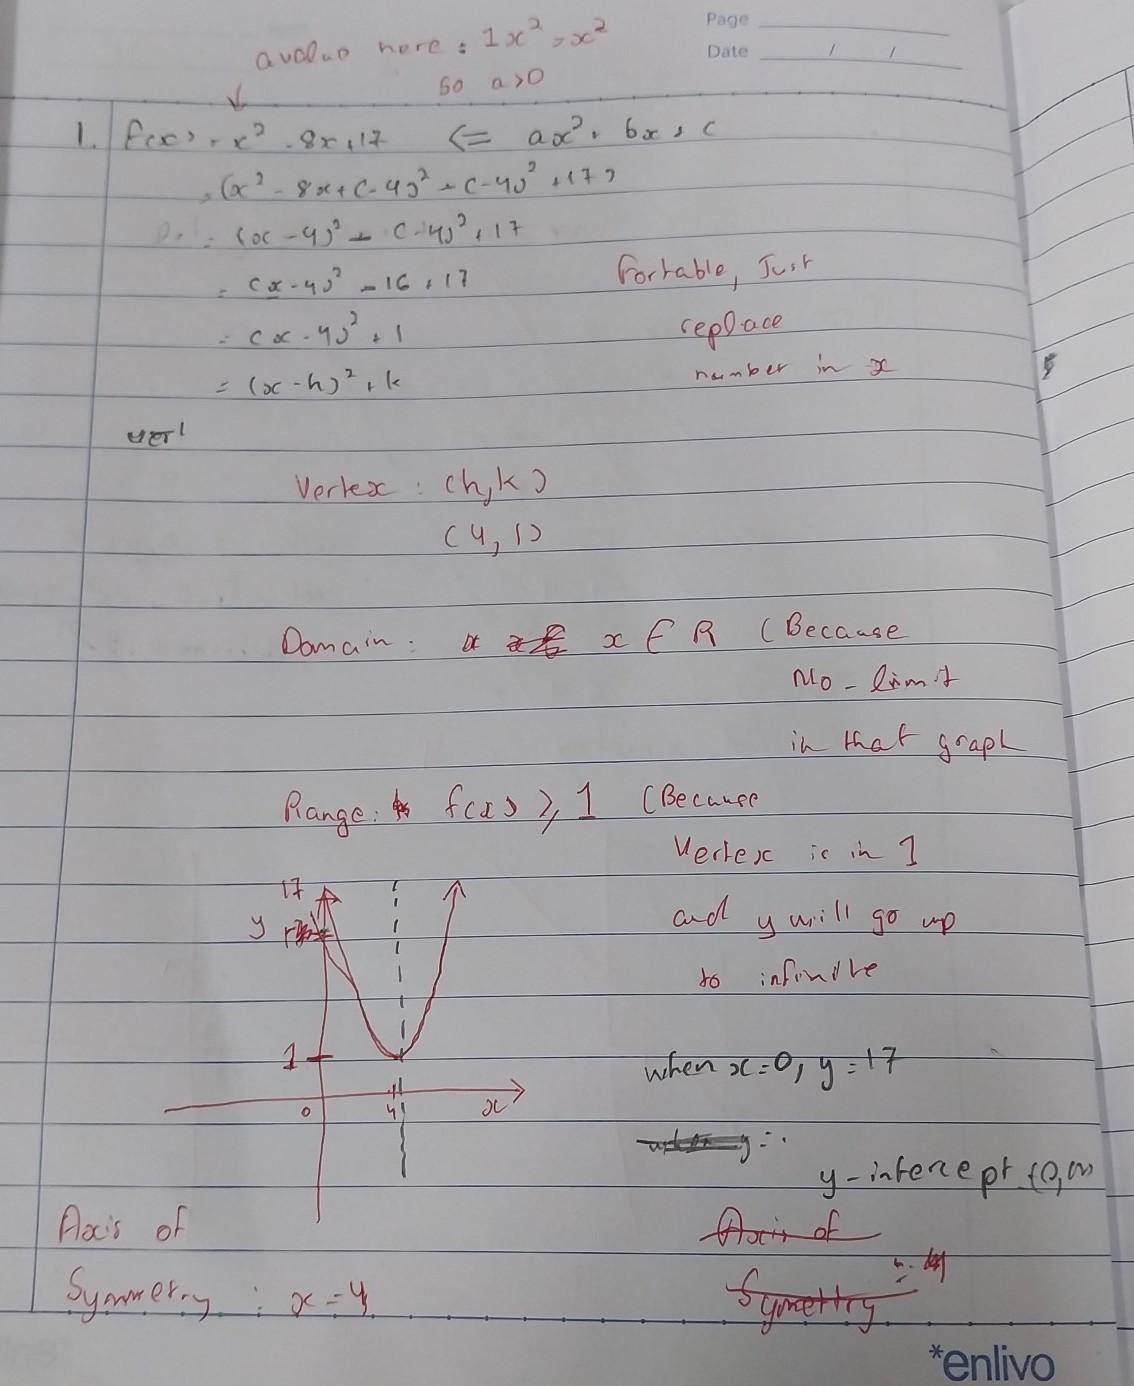 Page
Date / /
a value here : 1x² = x²
so a>0
1. f(x) = x² - 8x + 17 <= ax² + bx + c
= (x² - 8x + (-4)² - (-4)² + 17)
= (x - 4)² - (-4)² + 17
= (x - 4)² - 16 + 17
= (x - 4)² + 1
= (x - h)² + k
For table, Just
replace
number in x
Vertex : (h, k)
(4, 1)
Domain : x ∈ R (Because
No - limit
in that graph
Range : f(x) ⩾ 1 (Because
Vertex is in 1
and y will go up
to infinite
17
y
1
0 4 x
when x = 0, y = 17
when y = .
y - intercept
Axis of
Symmetry : x = 4
Axis of
Symettry
*enlivo